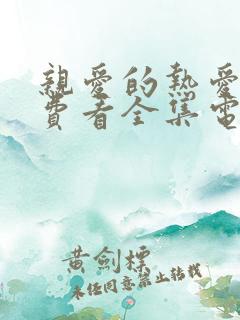 親愛的熱愛
費看全集電
黄劍標
未经同意禁止转载